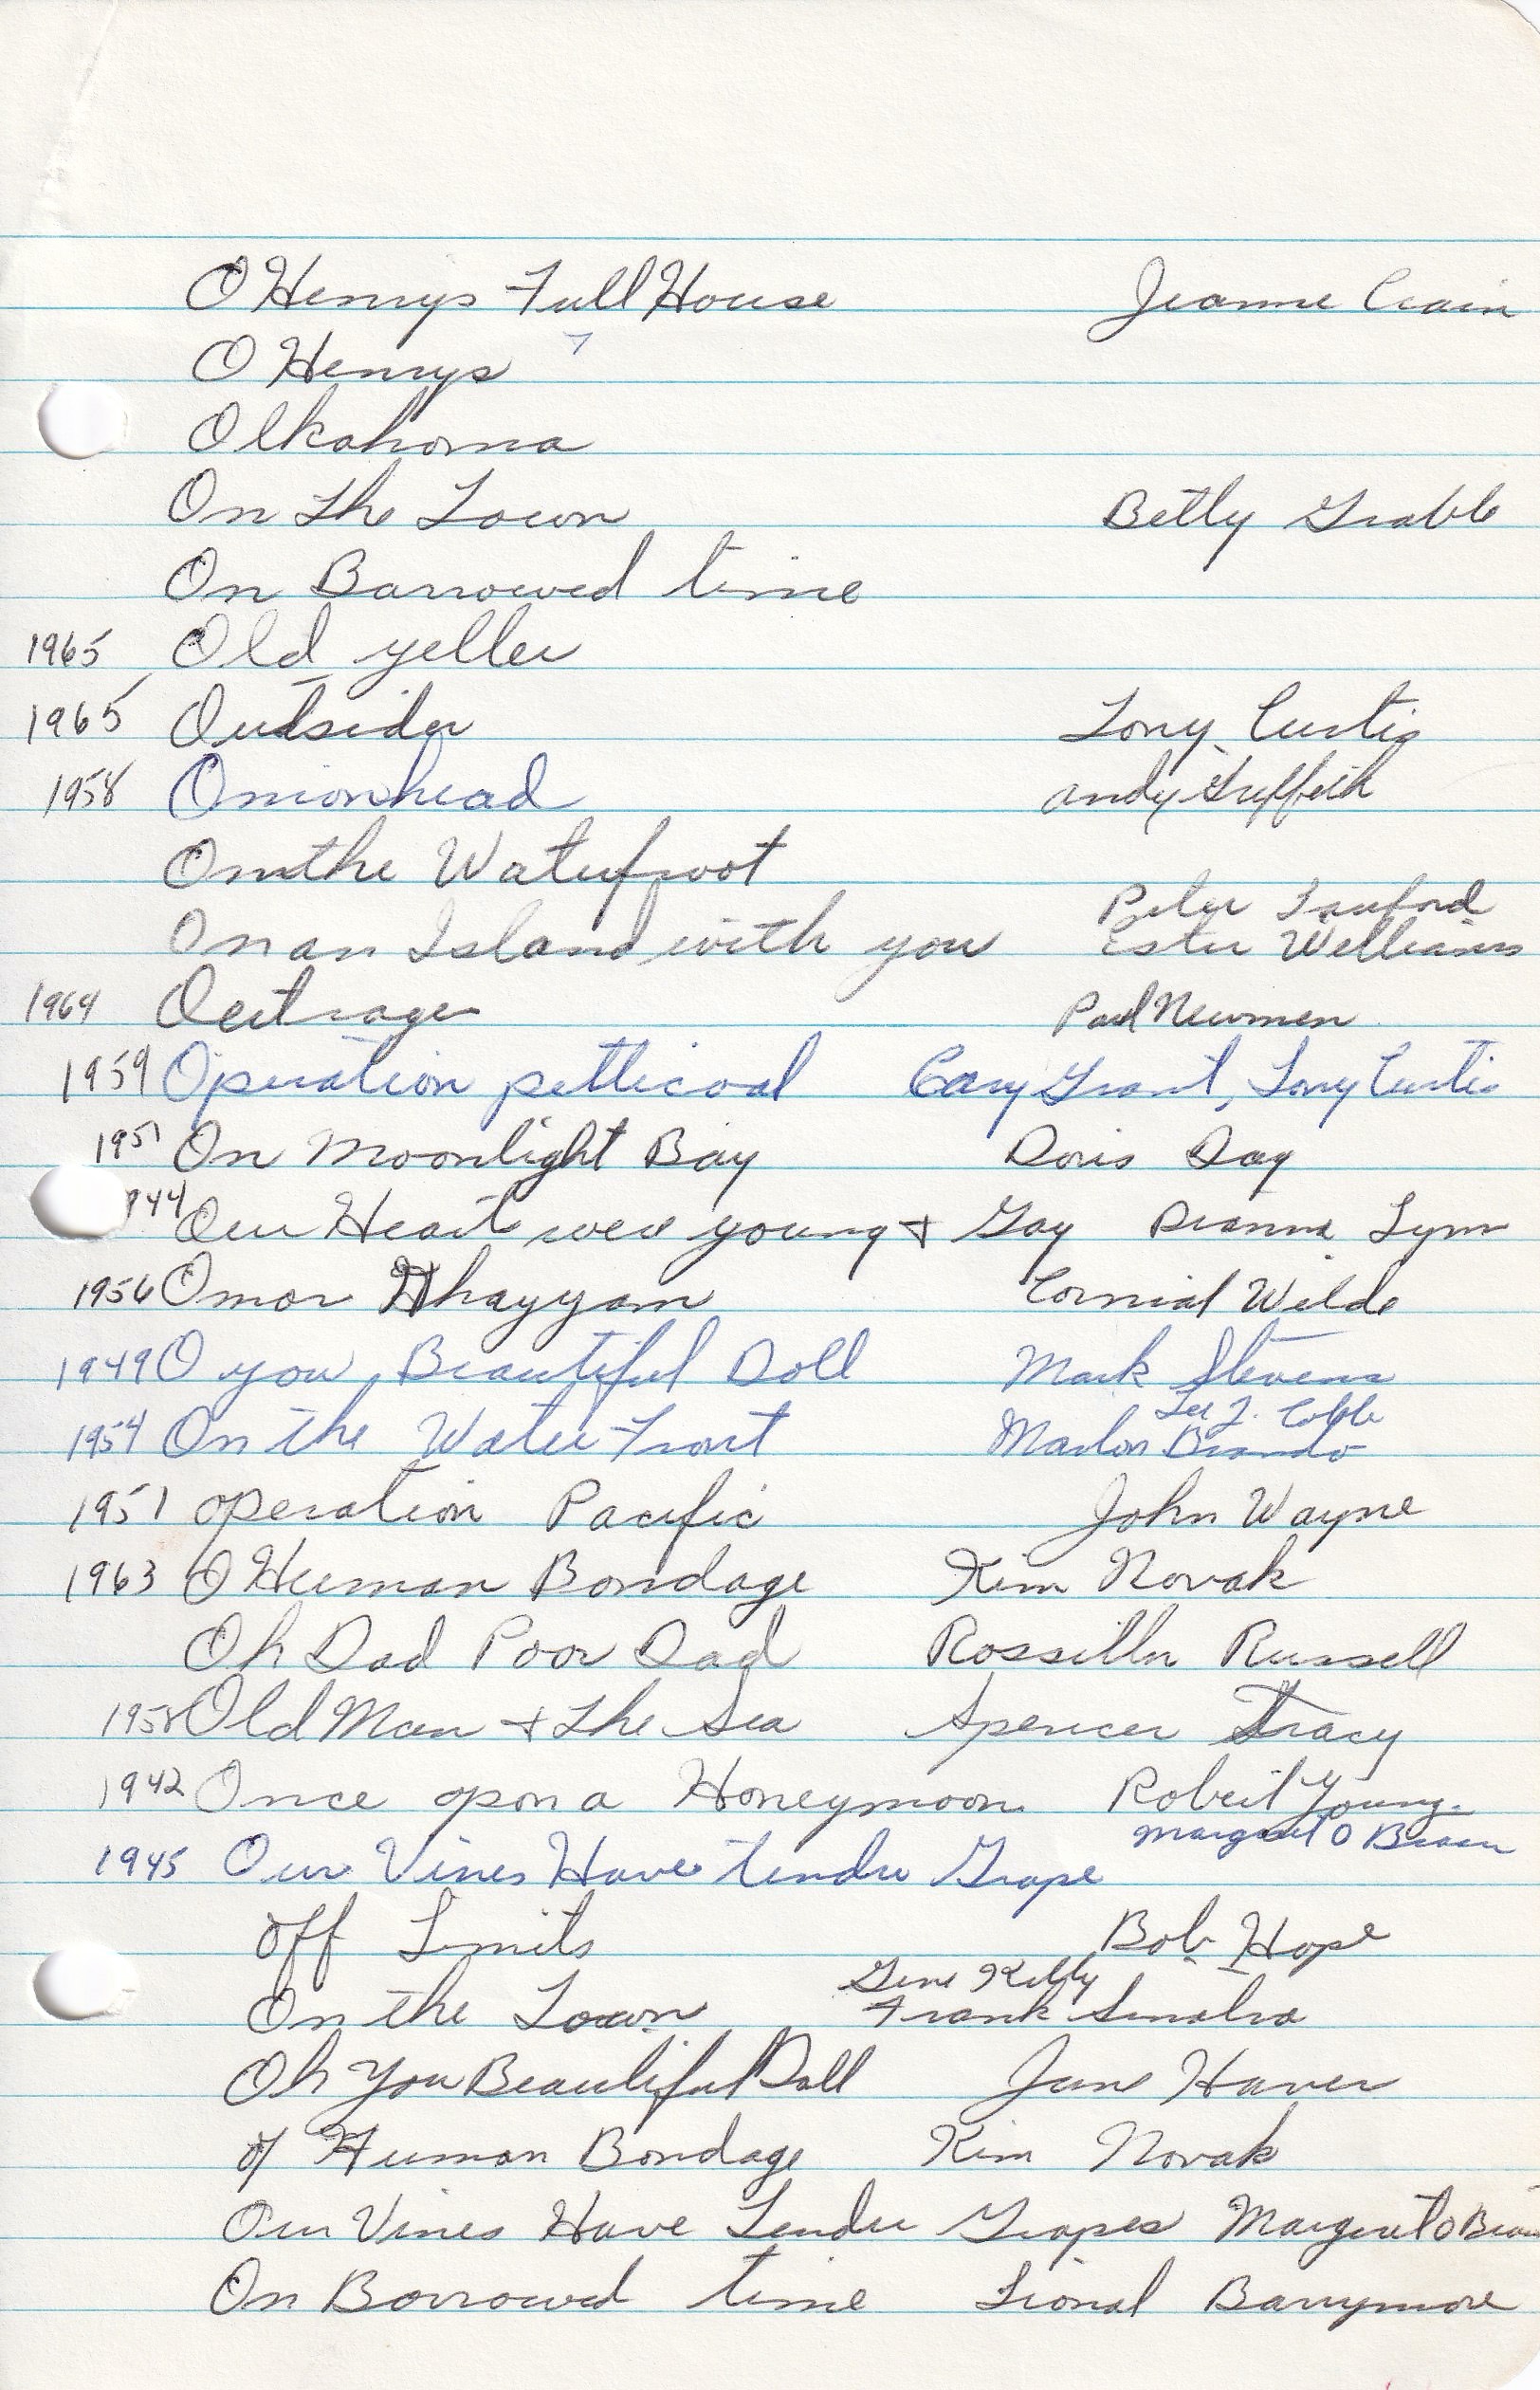 O Henrys Full House Jeanne Crain
O Henrys
Olkahoma
On The Town Betty Grable
On Barrowed time
1965 Old yeller
1965 Outsider Tony Curtis
1958 Onionhead Andy Griffith
On the Waterfront
Peter Lawford
On an Island with you Ester Williams
1964 Outrage Paul Newman
1959 Operation petticoat Cary Grant, Tony Curtis
1951 On Moonlight Bay Doris Day
944 Our Heart were young & Gay Dianna Lynn
1956 Omar Khayyam Cornial Wilde
1949 O you Beautiful Doll Mark Stevens
Lee J. Cobb
1954 On the Water Front Marlon Brando
1951 operation Pacific John Wayne
1963 O Human Bondage Kim Novak
Oh Dad Poor Dad Russell
1958 Old Man & The Sea Spencer Tracy
1942 Once opon a Honeymoon Robert Young
Margaret O Brien
1945 Our Vines Have tender Grape
Off Limits Bob Hope
Gene Kelly
On the Town Frank Sinatra
Oh You Beautiful Doll June Haver
of Human Bondage Kim Novak
Our Vines Have Tender Grapes Margaret O Brien
On Borrowed time Lional Barrymore